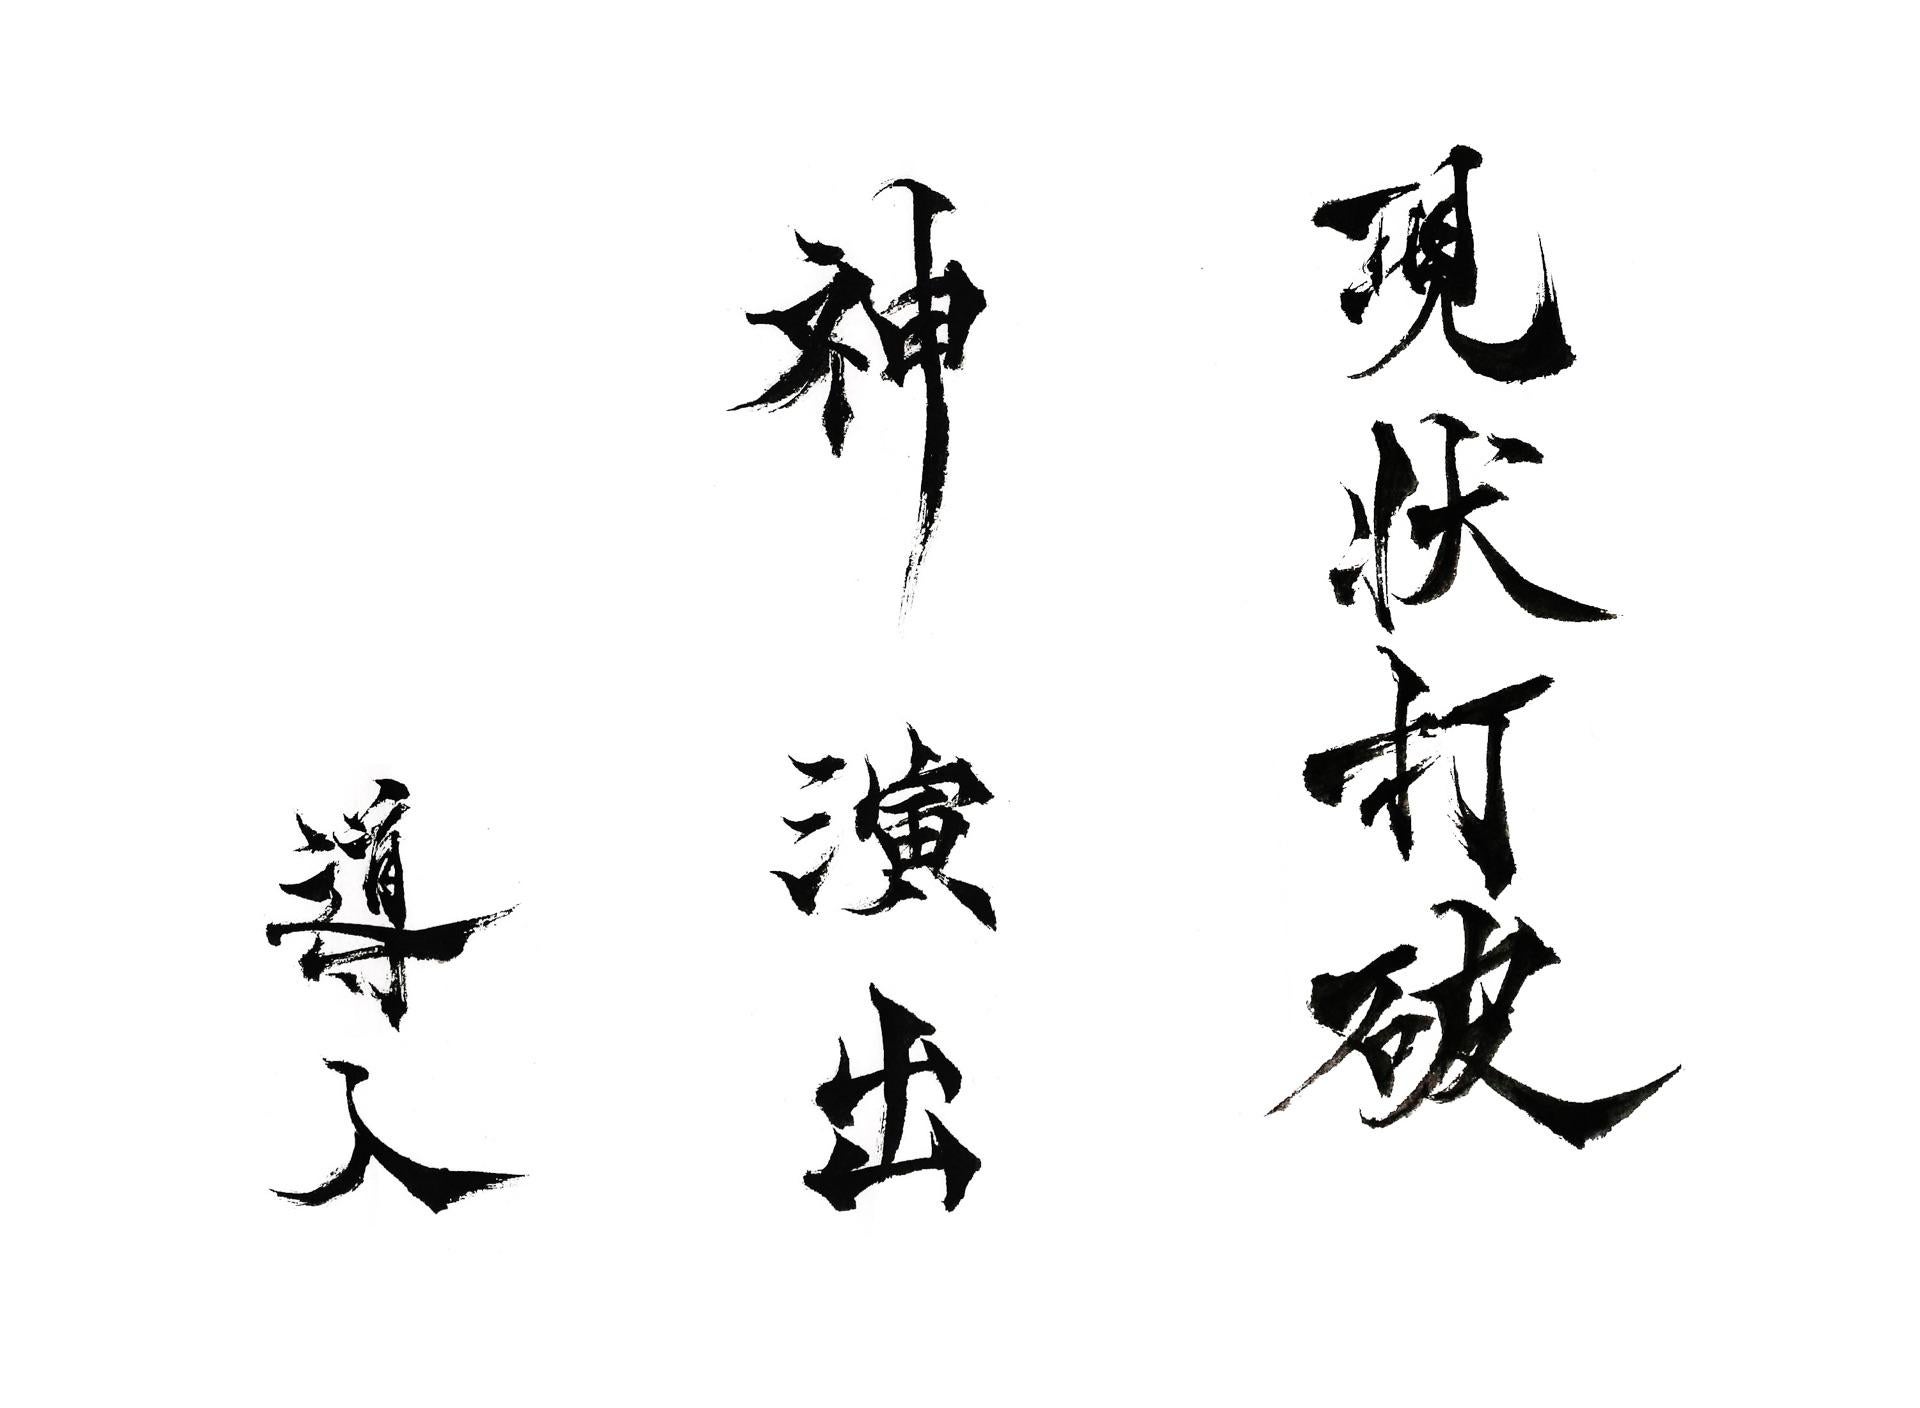 現状打破
神演出
導入